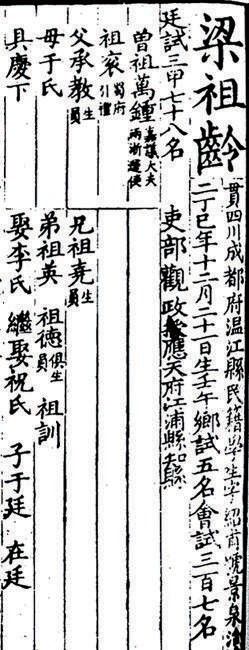 梁祖齡
貫四川成都府温江縣民籍學生字紹前號景泉治
二丁巳年十二月二十一日生壬午鄉試五名會試三百七名
廷試三甲七十八名 吏部觀政授應天府江浦縣知縣
曾祖萬鍾嘉議大夫兩浙運使
祖衮蜀府引禮
父承教生員
兄祖堯生員
母于氏
弟祖英 祖德俱生員 祖訓
具慶下
娶李氏 繼娶祝氏 子于廷 在廷